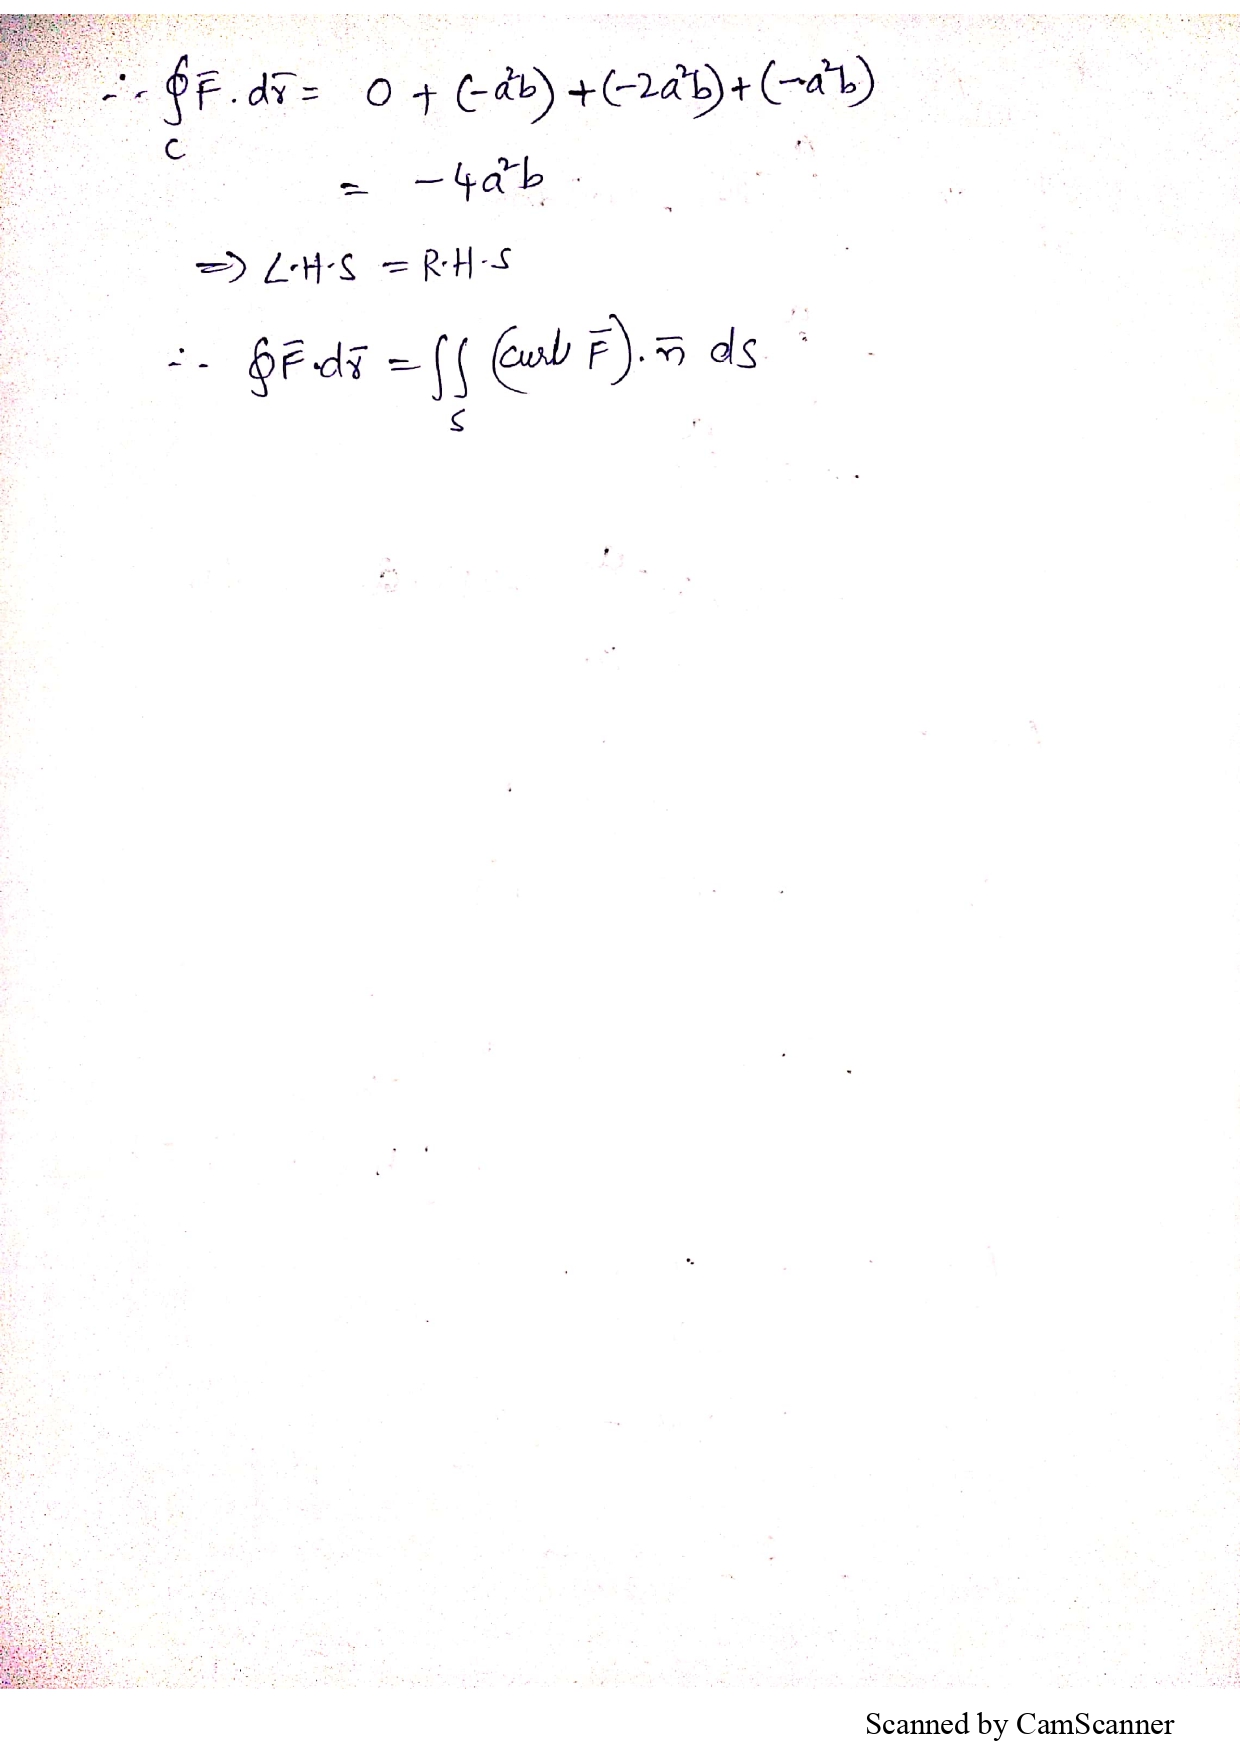 ∴ ∮F̄.dr̄ = 0 + (-a²b) + (-2a²b) + (-a²b)
C
= -4a²b
⇒ L.H.S = R.H.S
∴ ∮F̄.dr̄ = ∫∫ (curl F̄). n̄ ds
S
Scanned by CamScanner